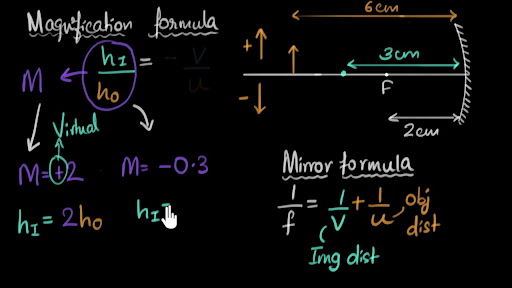 Magnification formula
M ← h_I / h_o = - v / u
Virtual
M = +2
M = -0.3
h_I = 2h_o
h_I =
6cm
+
3cm
-
F
2cm
Mirror formula
1/f = 1/v + 1/u
obj dist
Img dist